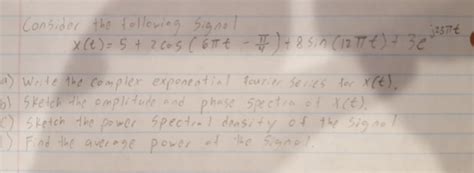 Consider the following Signal
x(t) = 5 + 2 cos(6πt - π/4) + 8 sin(12πt) + 3e^j25πt
a) Write the complex exponential fourier series for x(t).
b) Sketch the amplitude and phase spectra of x(t).
c) Sketch the power spectral density of the signal
) Find the average power of the signal.